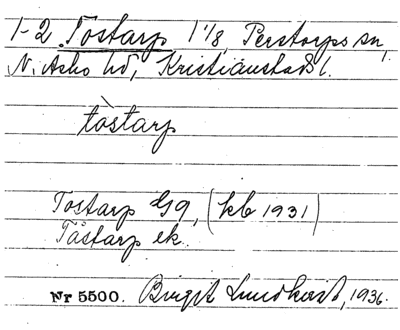 1-2 Tostarp 1 1/8, Perstorps sn,
N. Åsbo hd, Kristianstads l.
tòstarp
Tostarp Gg, (kb 1931)
Tåstarp ek.
Nr 5500. Birgit Lundkvist, 1936.